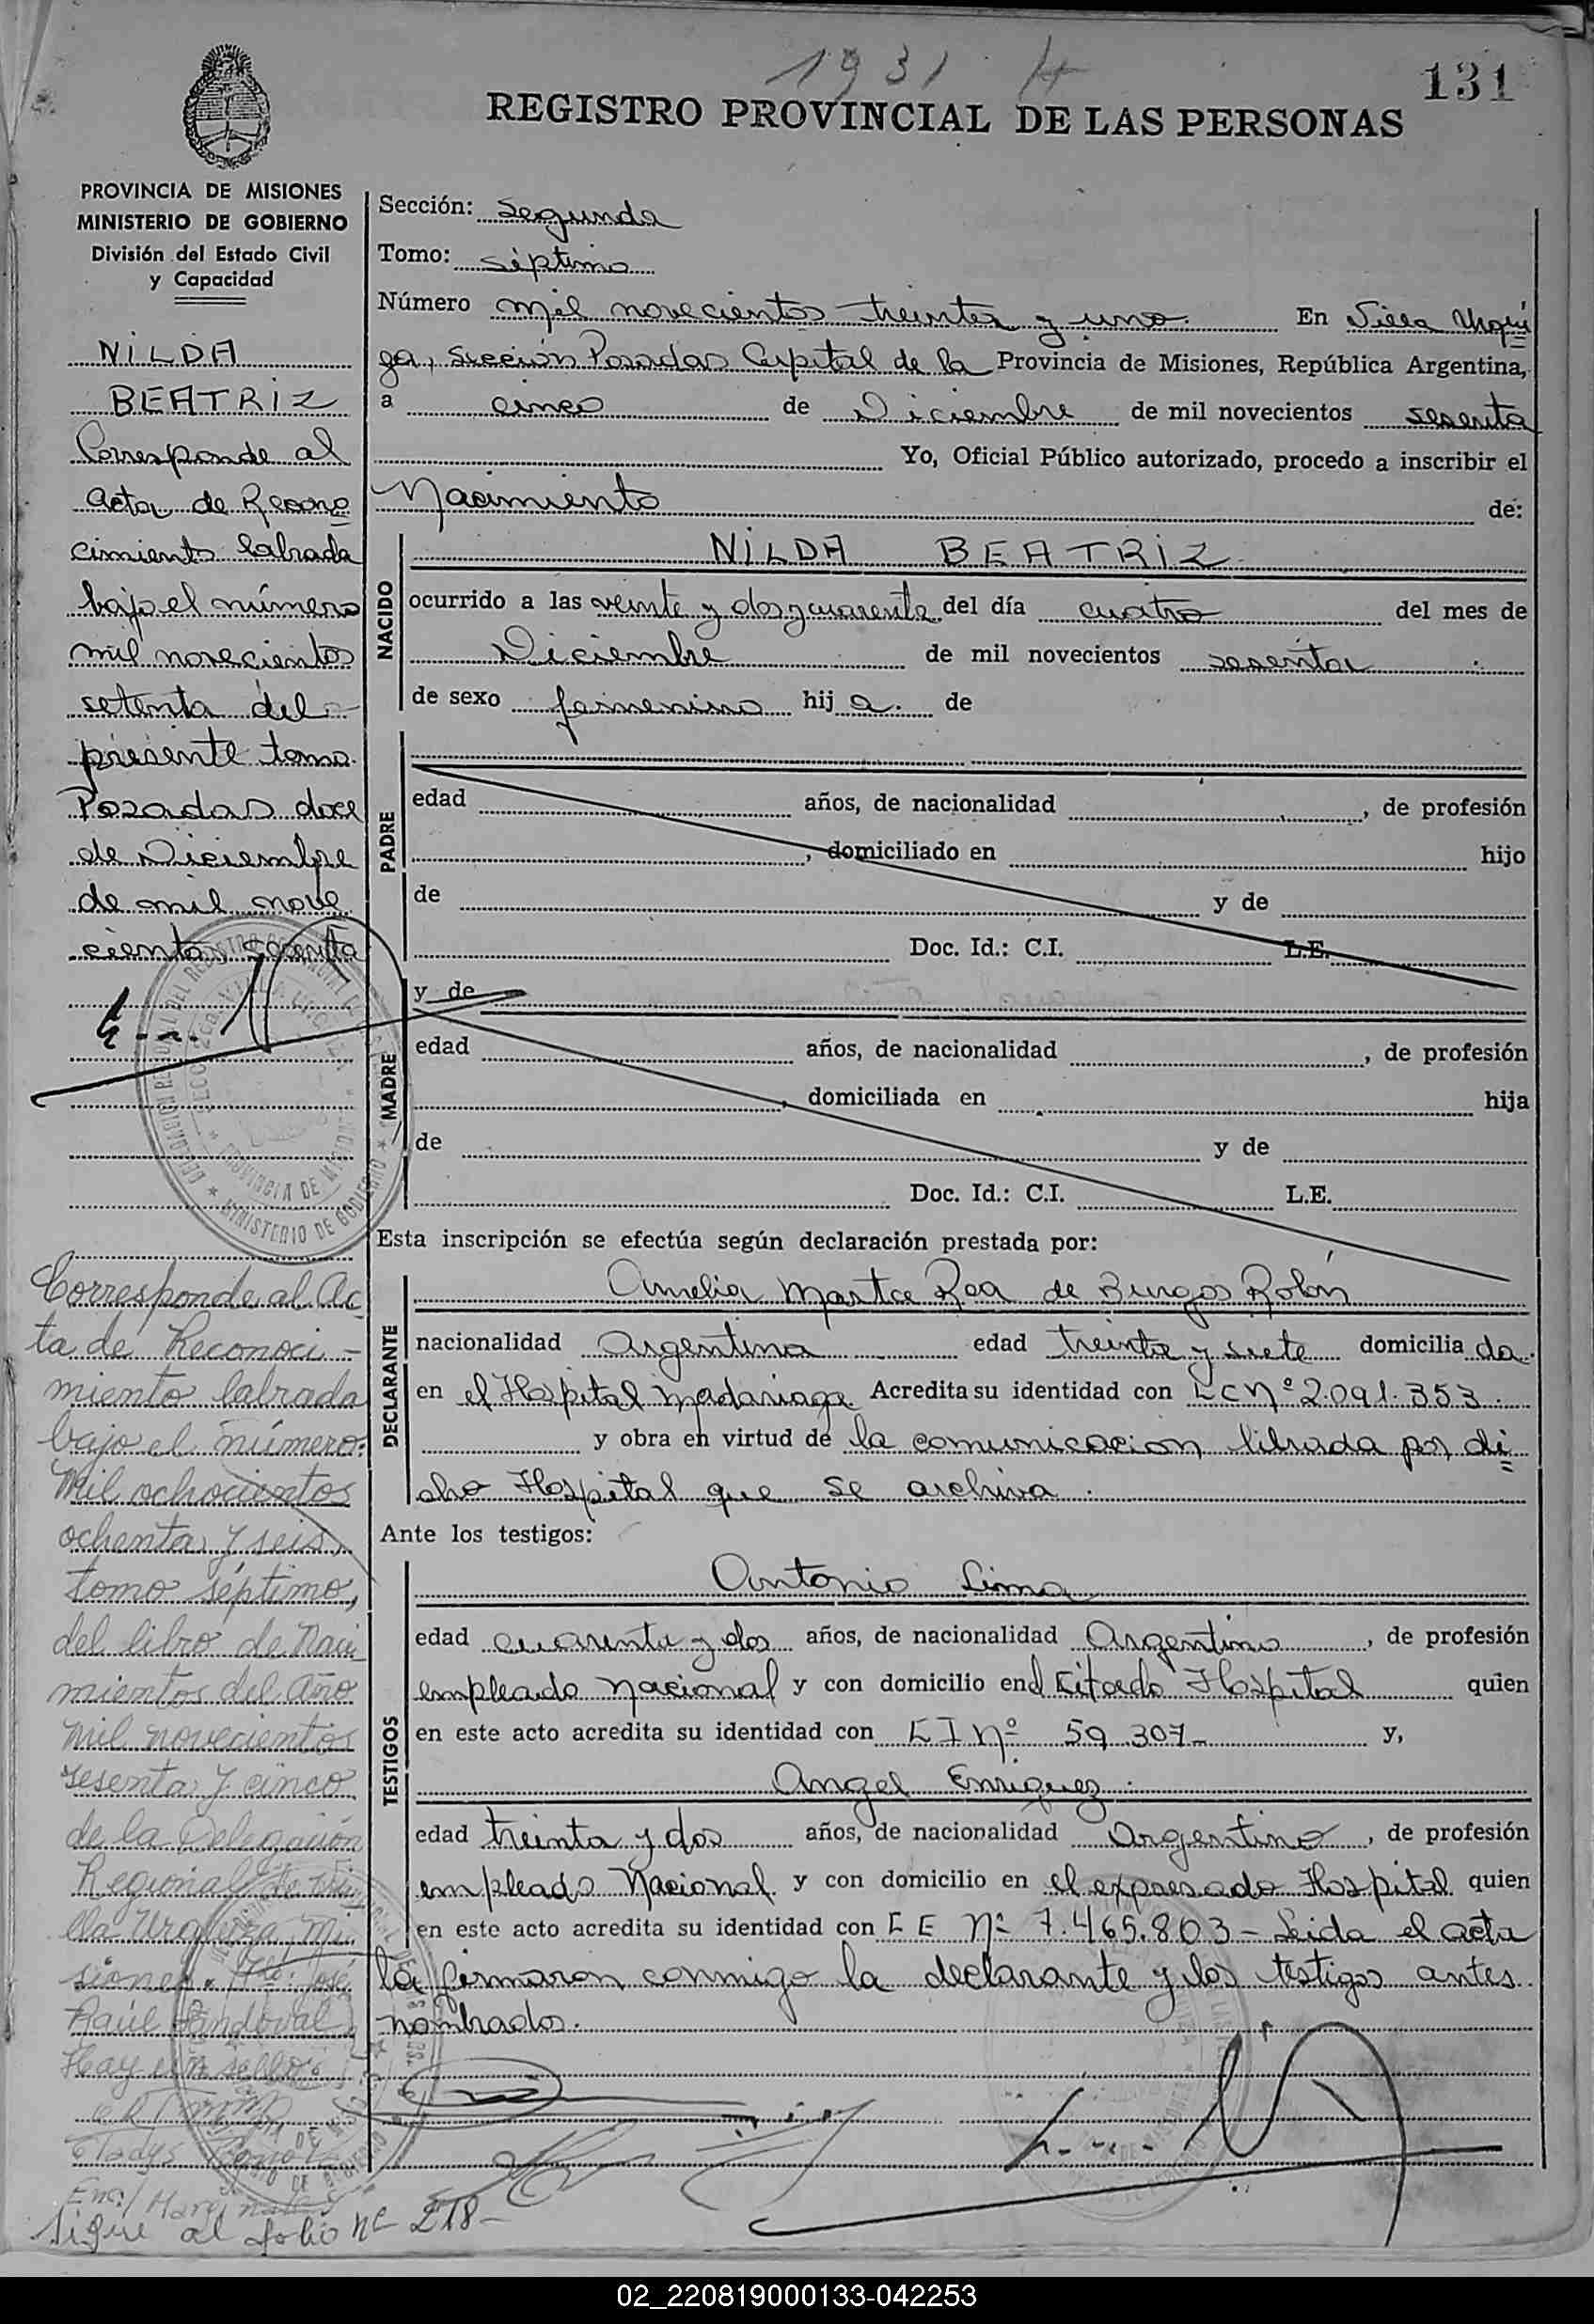 1931 H
131
REGISTRO PROVINCIAL DE LAS PERSONAS
PROVINCIA DE MISIONES
MINISTERIO DE GOBIERNO
División del Estado Civil
y Capacidad
NILDA
BEATRIZ
Corresponde al
acta de Recono
cimiento labrada
bajo el número
mil novecientos
setenta del
presente tomo.
Posadas doce
de Diciembre
de mil nove
cientos sesenta
Corresponde al Ac
ta de Reconoci-
miento labrada
bajo el número:
Mil ochocientos
ochenta y seis,
tomo séptimo,
del libro de Naci
mientos del año
mil novecientos
sesenta y cinco
de la Delegación
Regional de Vi
lla Urquiza, Mi
siones. Fdo: José
Raúl Sandoval
Hay un sello.
Sigue al folio nº 218-
Sección: Segunda
Tomo: séptimo
Número mil novecientos treinta y uno. En Villa Urqui
za, Sección Posadas Capital de la Provincia de Misiones, República Argentina,
a cinco de Diciembre de mil novecientos sesenta
Yo, Oficial Público autorizado, procedo a inscribir el
Nacimiento de:
NACIDO
NILDA BEATRIZ
ocurrido a las veinte y dos y cuarenta del día cuatro del mes de
Diciembre de mil novecientos sesenta
de sexo femenino hija. de
PADRE
edad años, de nacionalidad , de profesión
, domiciliado en hijo
de y de
Doc. Id.: C.I. L.E.
y de
MADRE
edad años, de nacionalidad , de profesión
, domiciliada en hija
de y de
Doc. Id.: C.I. L.E.
Esta inscripción se efectúa según declaración prestada por:
DECLARANTE
Amelia Martce Rea de Burgos Rolón
nacionalidad Argentina edad treinta y siete domiciliada.
en el Hospital Madariaga Acredita su identidad con LC Nº 2.091.353
y obra en virtud de la comunicacion librada por di
cho Hospital que se archiva.
Ante los testigos:
TESTIGOS
Antonio Lima
edad cuarenta y dos años, de nacionalidad Argentino, de profesión
empleado Nacional y con domicilio en el citado Hospital quien
en este acto acredita su identidad con CI Nº 59.307- y,
Angel Enriquez.
edad treinta y dos años, de nacionalidad Argentino, de profesión
empleado Nacional y con domicilio en el expresado Hospital quien
en este acto acredita su identidad con LE Nº 7.465.803- Leida el acta
la firmaron conmigo la declarante y los testigos antes
nombrados.
02_220819000133-042253